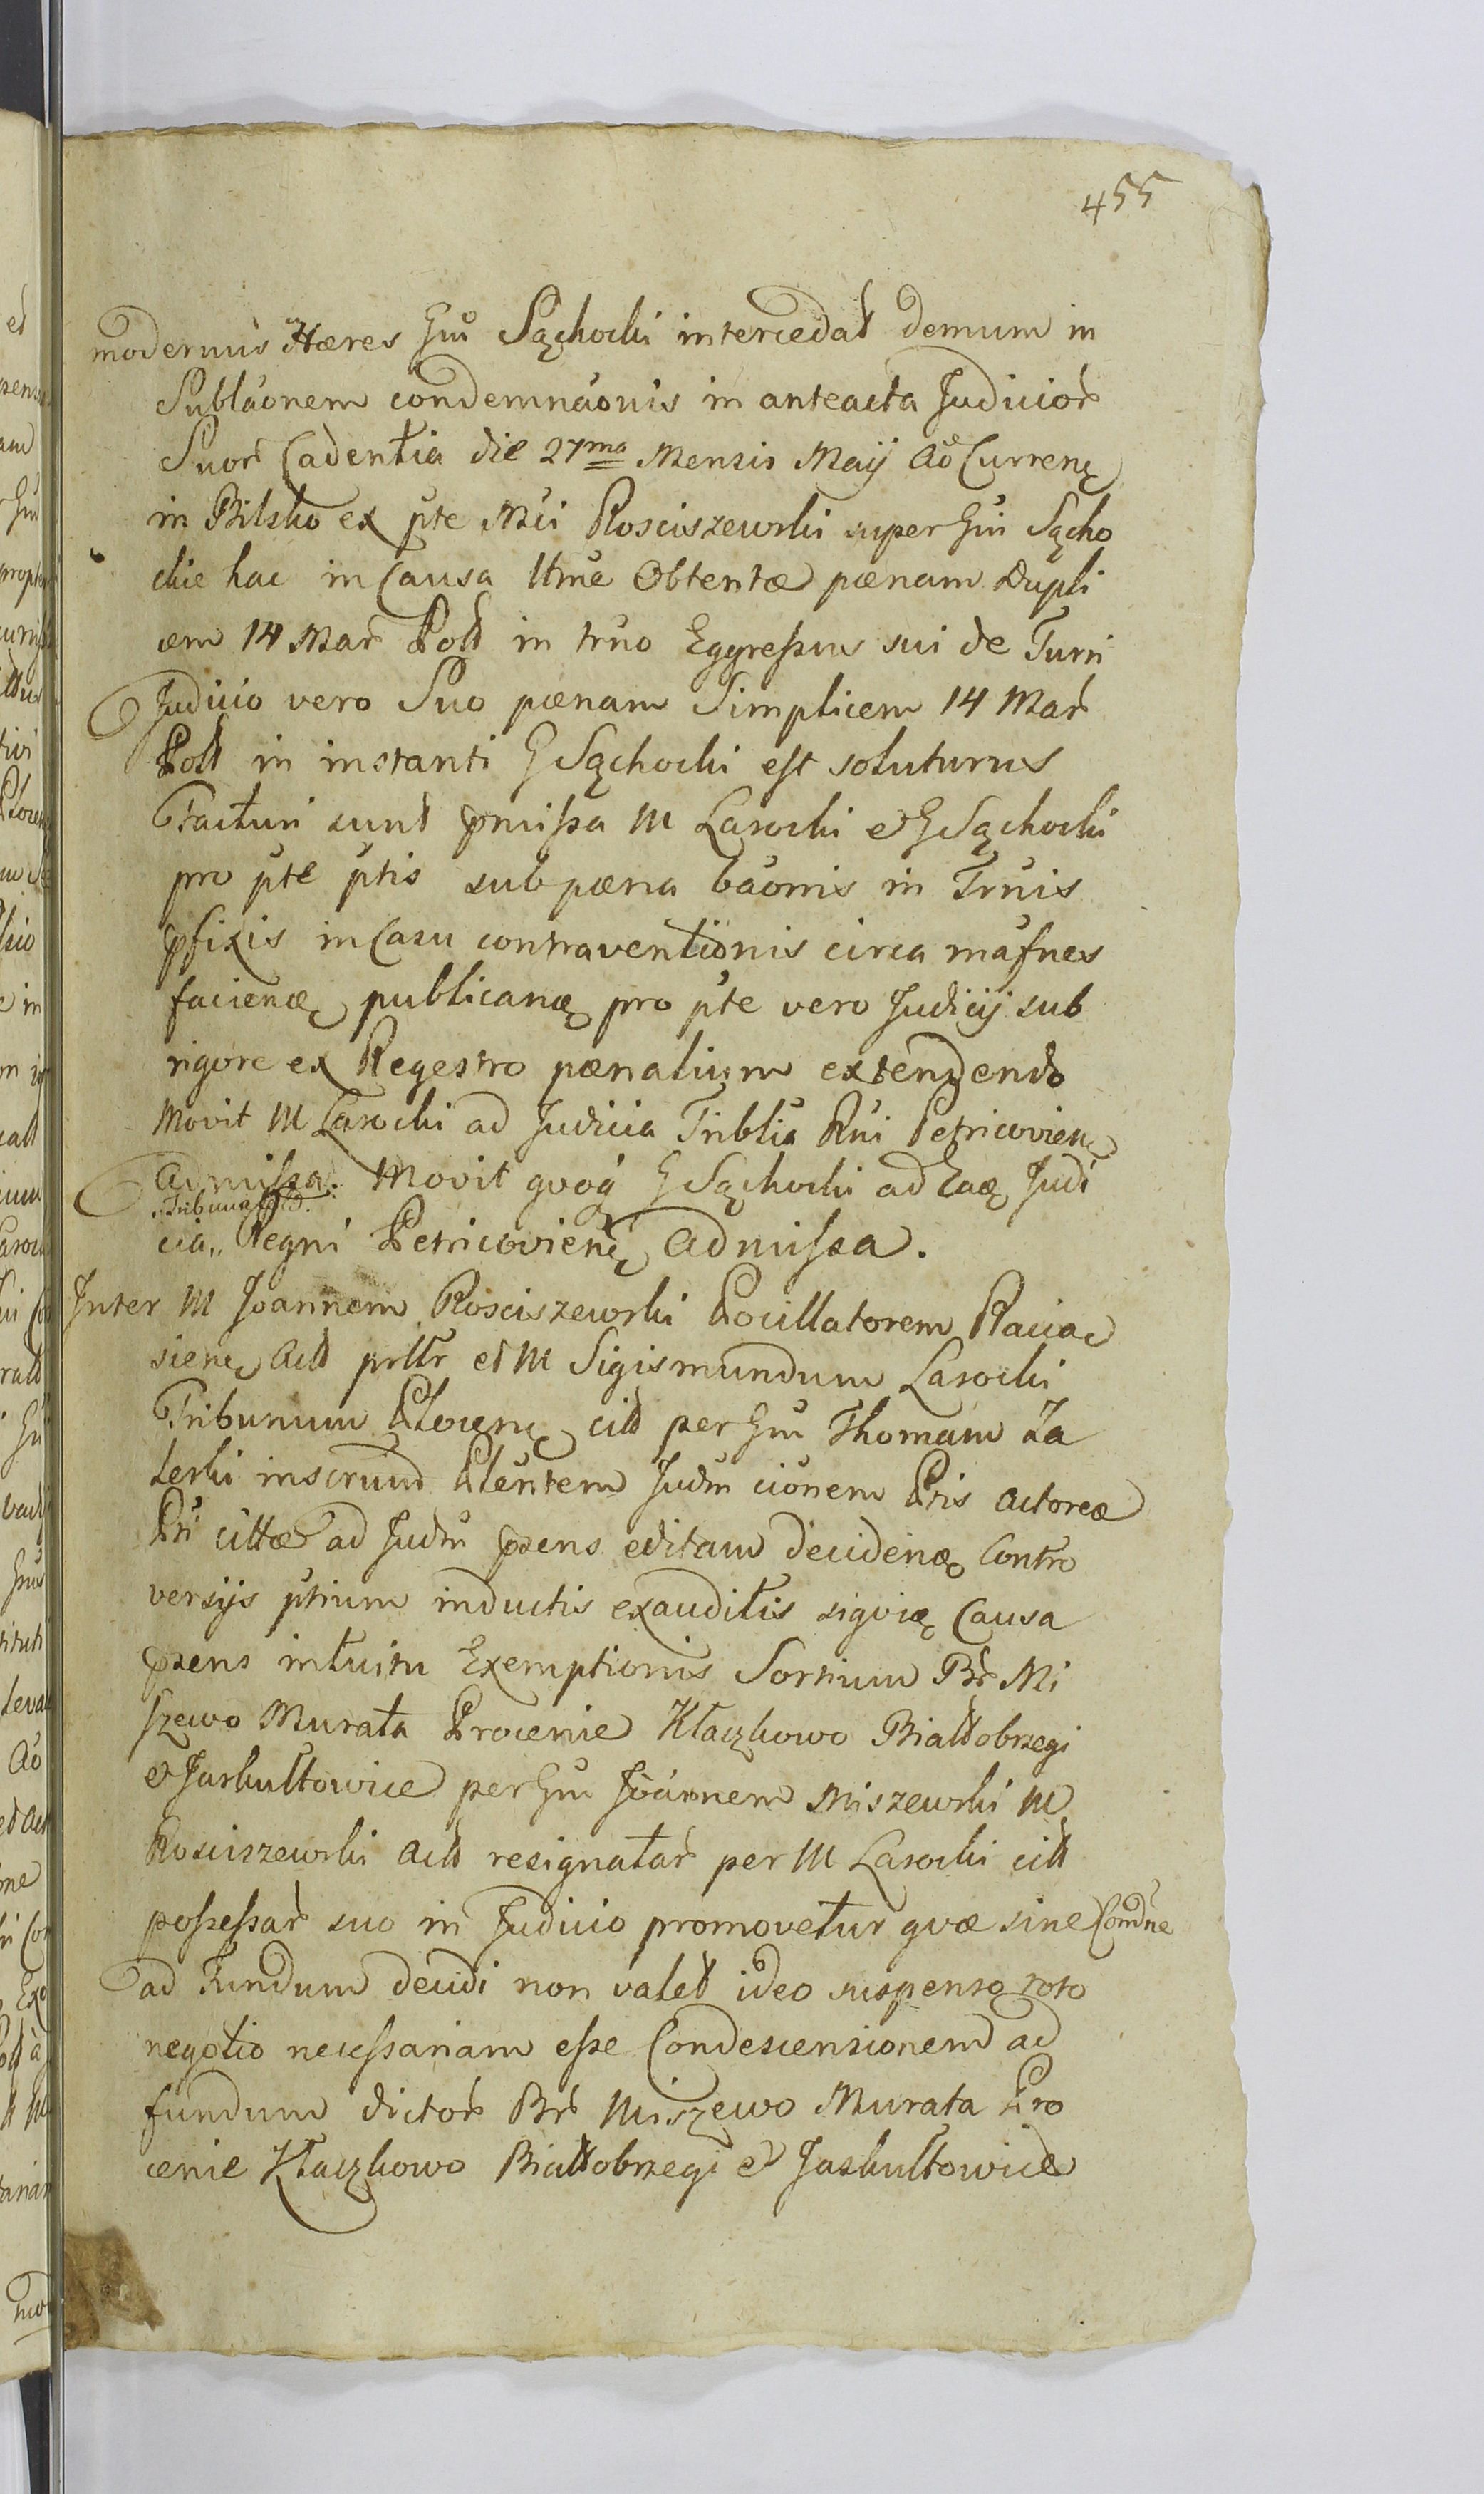 455
modernus Hæres Gni Sąchocki intercedat demum in
Sublaonem condemnaonis in anteacta Judicior
Suor Cadentia die 27ma Mensis Maij Ao Curren
in Bilsko ex pte Mci Rosciszewski super Gni Sącho
ckie hac in Causa ltme Obtentæ pœnam Dupli
cem 14 Mar Poll in trno Eggressus sui de Turri
Judicio vero Suo pœnam Simplicem 14 Mar
Poll in instanti G Sąchocki est soluturus
Facturi sunt pmissa M Lasocki et G Sąchocki
pro pte ptis sub pœna baonis in Trnis
pfixis in Casu contraventionis circa mafnes
facienæ publicanæ pro pte vero Judicij sub
rigore ex Regestro pœnalium extendendo
Movit M Lasocki ad Judicia Triblia Rni Petricovien
admissa. Movit qvoq G Sąchocki ad Eaæ Judi
Tribunal
cia Regni Petricovien Admissa.
Inter M Joannem Rosciszewski Pocillatorem Raciac
sien Act prltr et M Sigismundum Lasocki
Tribunum Plocen cit per Gni Thomam Za
leski inscrum Plentem Judm cionem Ptis Actoreæ
Pti cittæ ad Judm psens editam decidenæ Contro
versijs ptium inductis exauditis siqviæ Causa
psens intuitu Exemptionis Sortium Br Mi
szewo Murata Procenie Kłaczkowo Białłobrzegi
et Jaskultowice per Gni Joannem Miszewski M
Rosciszewski Act resignatar per M Lasocki cit
possessar suo in Judicio promovetur qvæ sine Condne
ad Fundum decidi non valet ideo suspenso toto
negotio necessariam esse Condescensionem ad
fundum dictor Br Miszewo Murata Pro
cenie Kłaczkowo Białłobrzegi et Jaskultowice